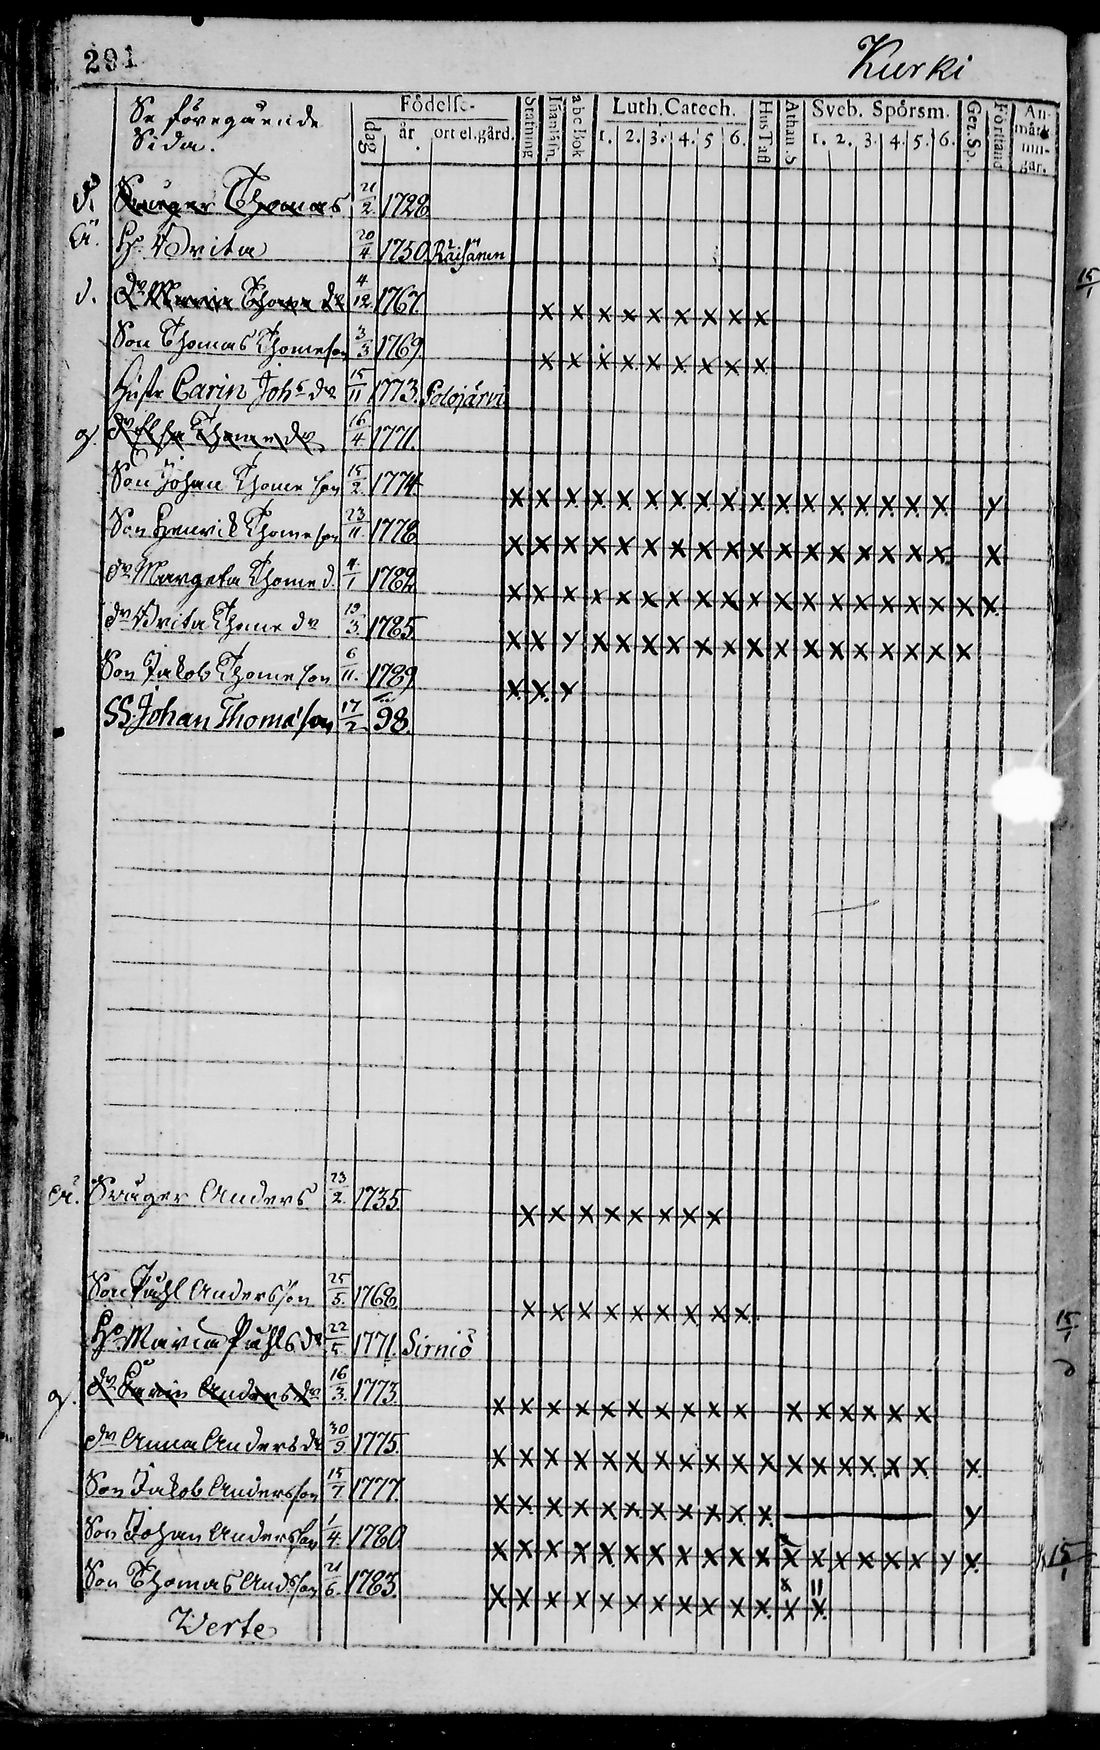 291 Kurki
Se föregående
Sida.
Födelse-
dag år ort el. gård. Stafning Innanläsn. abc Bok Luth. Catech. 1. 2. 3. 4. 5 6. Hus Tafl Athan. S Sveb. Spörsm. 1. 2. 3. 4. 5. 6. Gez. Sp. Förstånd An-märk-nin-gar.
d. Swåger Thomas 21/2 1728
Ä. H. Brita 20/4 1750. Räisänen
d. dr Maria Thome dr 4/12 1767. x x x x x x x x x
Son Thomas Thomeson 3/3 1769. x x x x x x x x x
Hustr Carin Johs dr 15/11 1773. Polojärvi
g. dr Elsa Thome dr 16/4. 1771.
Son Johan Thomeson 15/2. 1774 x x x x x x x x x x x x x x x x x y
Son Henrik Thomeson 23/11. 1778 x x x x x x x x x x x x x x x x x x
dr Margeta Thome d. 4/1 1782 x x x x x x x x x x x x x x x x x x x
dr Brita Thome dr 19/3. 1785 x x y x x x x x x x x x x x x x x x
Son Jakob Thomeson 6/11. 1789 x x x
SS. Johan Thomæson 17/2 98.
Ä. Swåger Anders 23/2. 1735 x x x x x x x x
Son Påhl Andersson 25/5. 1768 x x x x x x x x x
H. Maria Påhls dr 22/5 1771. Sirniö
g. dr Karin Anders dr 16/3. 1773 x x x x x x x x x x x x x x x x
dr Anna Anders dr 30/9 1775. x x x x x x x x x x x x x x x x x x
Son Jakob Andersson 15/7 1777. x x x x x x x x x x x y
Son Johan Andersson 1/4. 1780 x x x x x x x x x x x x x x x x x y x
Son Thomas Andsson 21/6. 1783. x x x x x x x x x x x x x
Verte